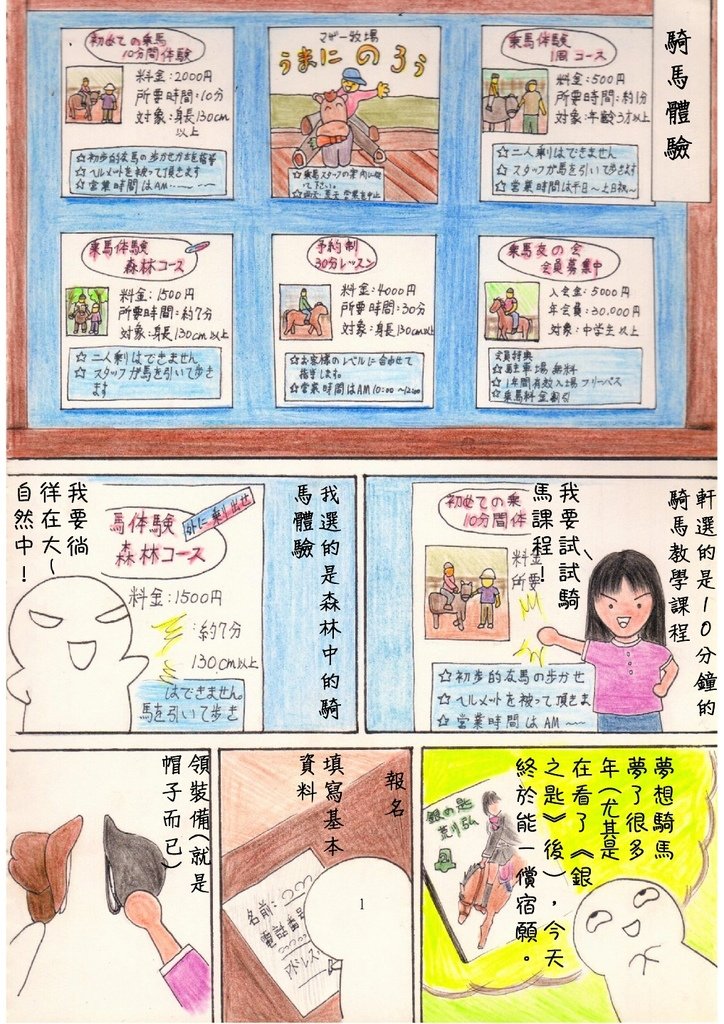 騎馬體驗
初めての乗馬
10分間体験
料金:2000円
所要時間:10分
対象:身長130cm
以上
☆ヘルメットを被って頂きます
☆営業時間はAM
マザー牧場
うまにのろう
乗馬体験
1周コース
料金:500円
所要時間:約1分
対象:年齢3才以上
☆二人乗りはできません
☆スタッフが馬を引いて歩きます
☆営業時間は平日～土日祝～
乗馬体験
森林コース
料金:1500円
所要時間:約7分
対象:身長130cm以上
☆二人乗りはできません
☆スタッフが馬を引いて歩き
ます
予約制
30分レッスン
料金:4000円
所要時間:30分
対象:身長130cm以上
☆お客様のレベルに合わせて
指導します。
☆営業時間はAM10:00～12:00
乗馬友の会
会員募集中
入会金:5000円
年会員:30,000円
対象:中学生以上
会員特典
☆駐車場無料
☆1年間有効入場フリーパス
☆乗馬料金割引
軒選的是10分鐘的
騎馬教學課程
我要試試騎
馬課程!
初めての乗
10分間体
料金
所要
☆初歩的な馬の歩かせ
☆ヘルメットを被って頂きま
☆営業時間はAM～～
我選的是森林中的騎
馬體驗
我要徜
徉在大~
自然中!
外に乗り出せ
馬体験
森林コース
料金:1500円
:約7分
130cm以上
はできません。
馬を引いて歩き
夢想騎馬
夢了很多
年(尤其是
在看了《銀
之匙》後),今天
終於能一償宿願。
銀の匙
荒川弘
報名
填寫基本
資料
名前:
電話番号
アドレス
1
領裝備(就是
帽子而已)